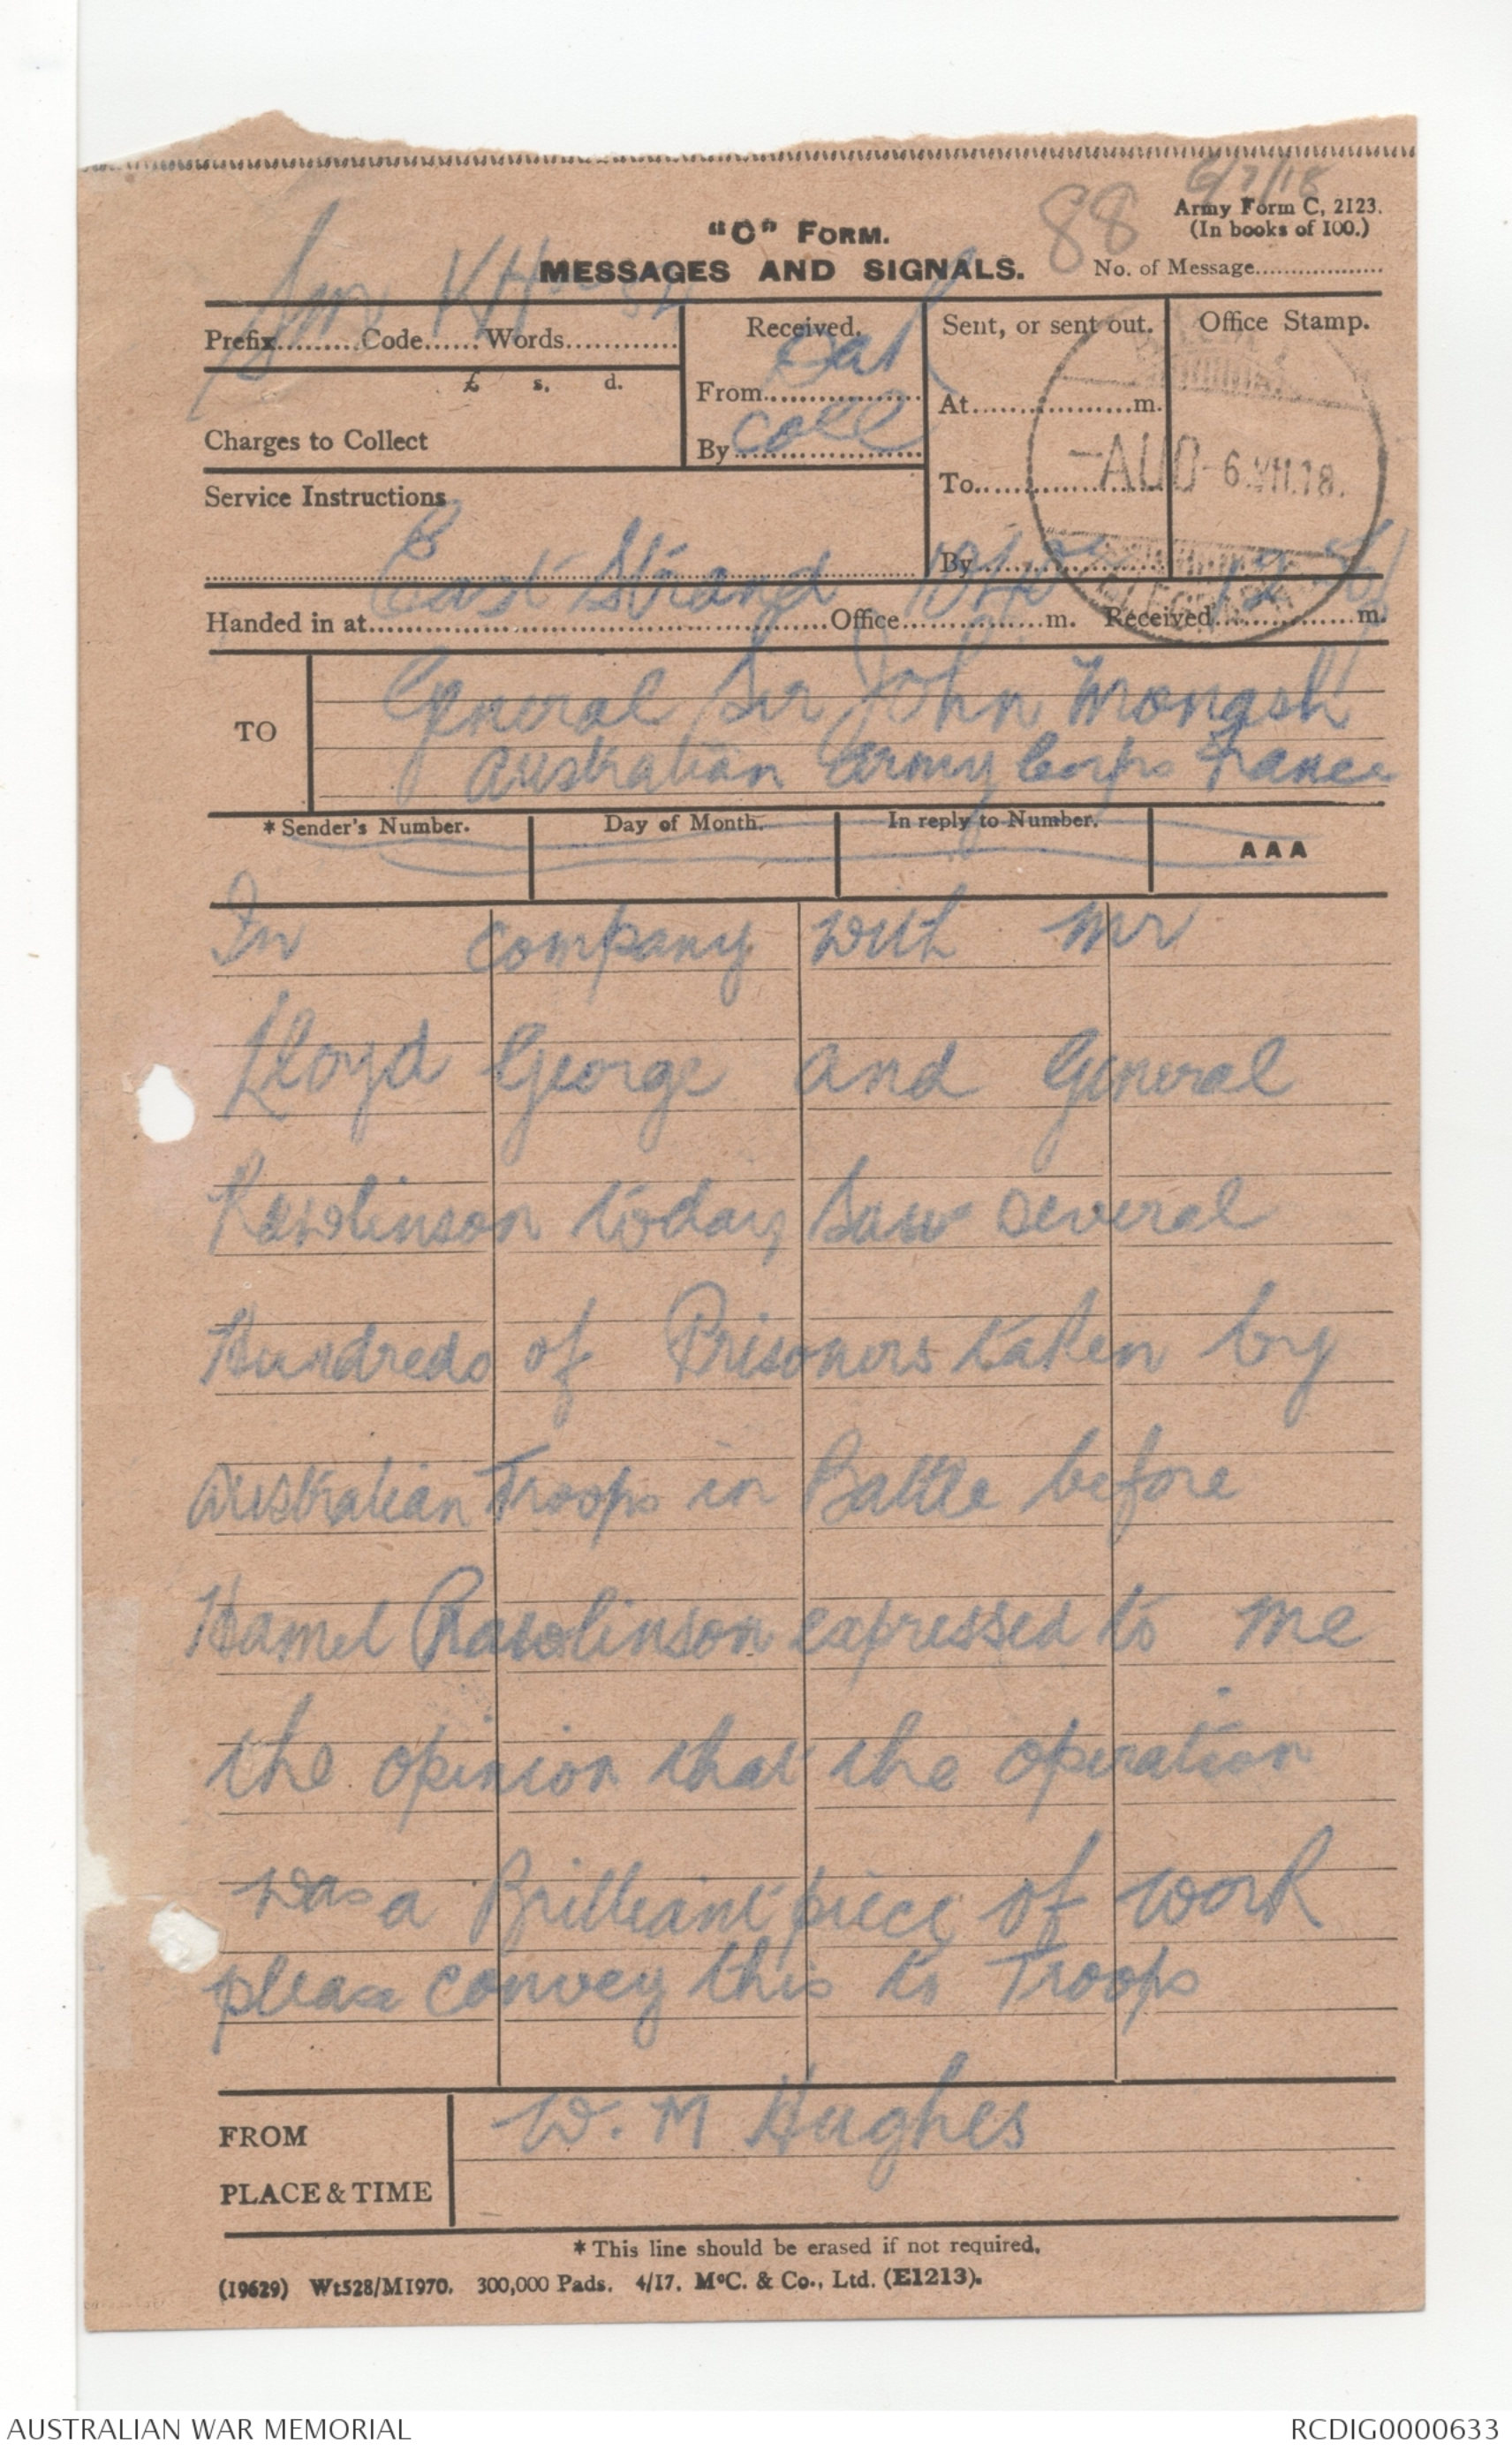 6/7/18
88
Army Form C, 2123.
(In books of 100.)
"C" FORM.
MESSAGES AND SIGNALS.
No. of Message
Sm
Prefix Code Words
£ s. d.
Charges to Collect
Service Instructions
Received.
From
By Coll
Sent, or sent out.
At m.
To
By
Office Stamp.
-AUO- 6.VII.18.
Handed in at East Strand Office m. Received m.
TO
General Sir John Monash
Australian Army Corps France
* Sender's Number. Day of Month. In reply to Number. AAA
In company with Mr
Lloyd George and General
Rawlinson today saw several
Hundreds of Prisoners taken by
Australian Troops in Battle before
Hamel Rawlinson expressed to me
the opinion that the operation
was a Brilliant piece of work
please convey this to Troops
FROM W. M Hughes
PLACE & TIME
* This line should be erased if not required.
(19629) Wt528/M1970. 300,000 Pads. 4/17. McC. & Co., Ltd. (E1213).
AUSTRALIAN WAR MEMORIAL
RCDIG0000633